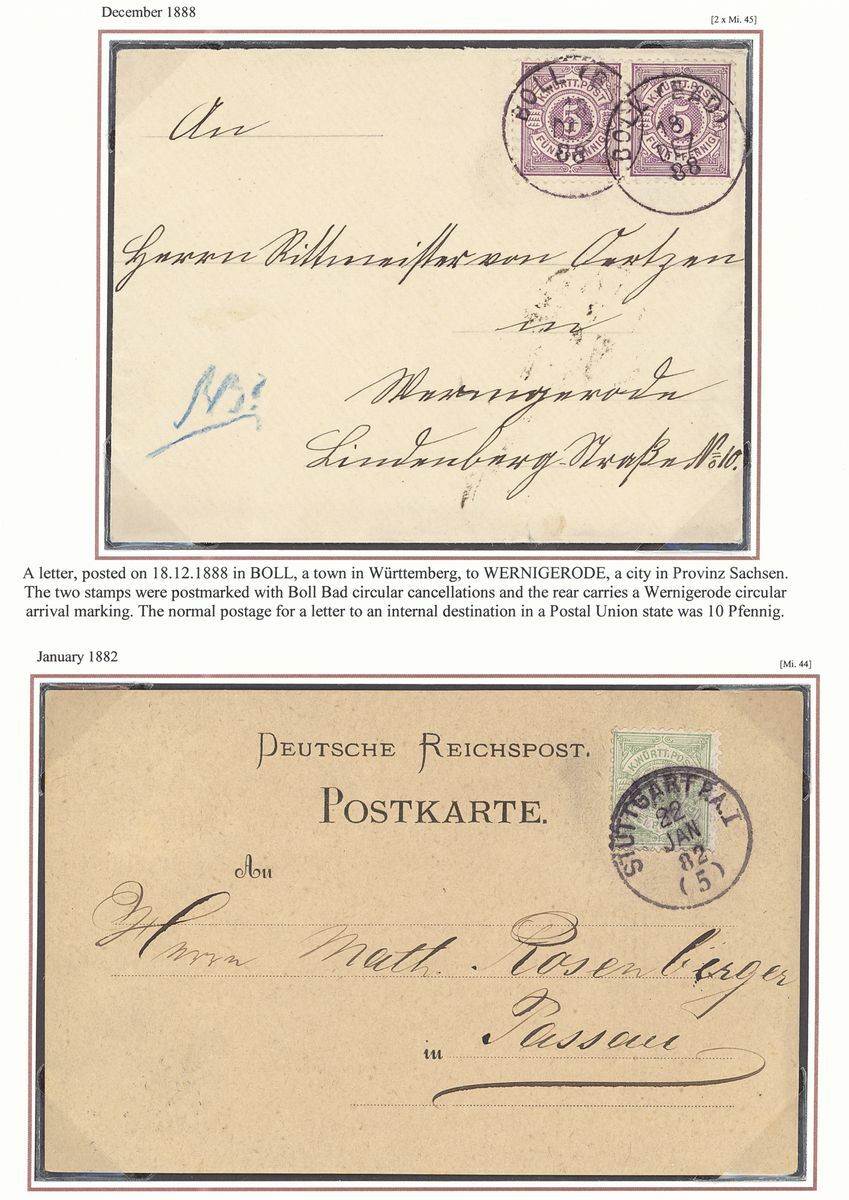 December 1888
[2 x Mi. 45]
BOLL
18
88
K.WÜRTT.POST
5
FÜNF PFENNIG
BOLL (BAD)
18
88
K.WÜRTT.POST
5
PFENNIG
An
Herrn Rittmeister von Oertzen
in
Wernigerode
Lindenberg-Straße No 10.
A letter, posted on 18.12.1888 in BOLL, a town in Württemberg, to WERNIGERODE, a city in Provinz Sachsen.
The two stamps were postmarked with Boll Bad circular cancellations and the rear carries a Wernigerode circular
arrival marking. The normal postage for a letter to an internal destination in a Postal Union state was 10 Pfennig.
January 1882
[Mi. 44]
DEUTSCHE REICHSPOST.
POSTKARTE.
K.WÜRTT.POST
STUTTGART P.A.I
22
JAN
82
(5)
An
Herrn Math. Rosenberger
in Passau